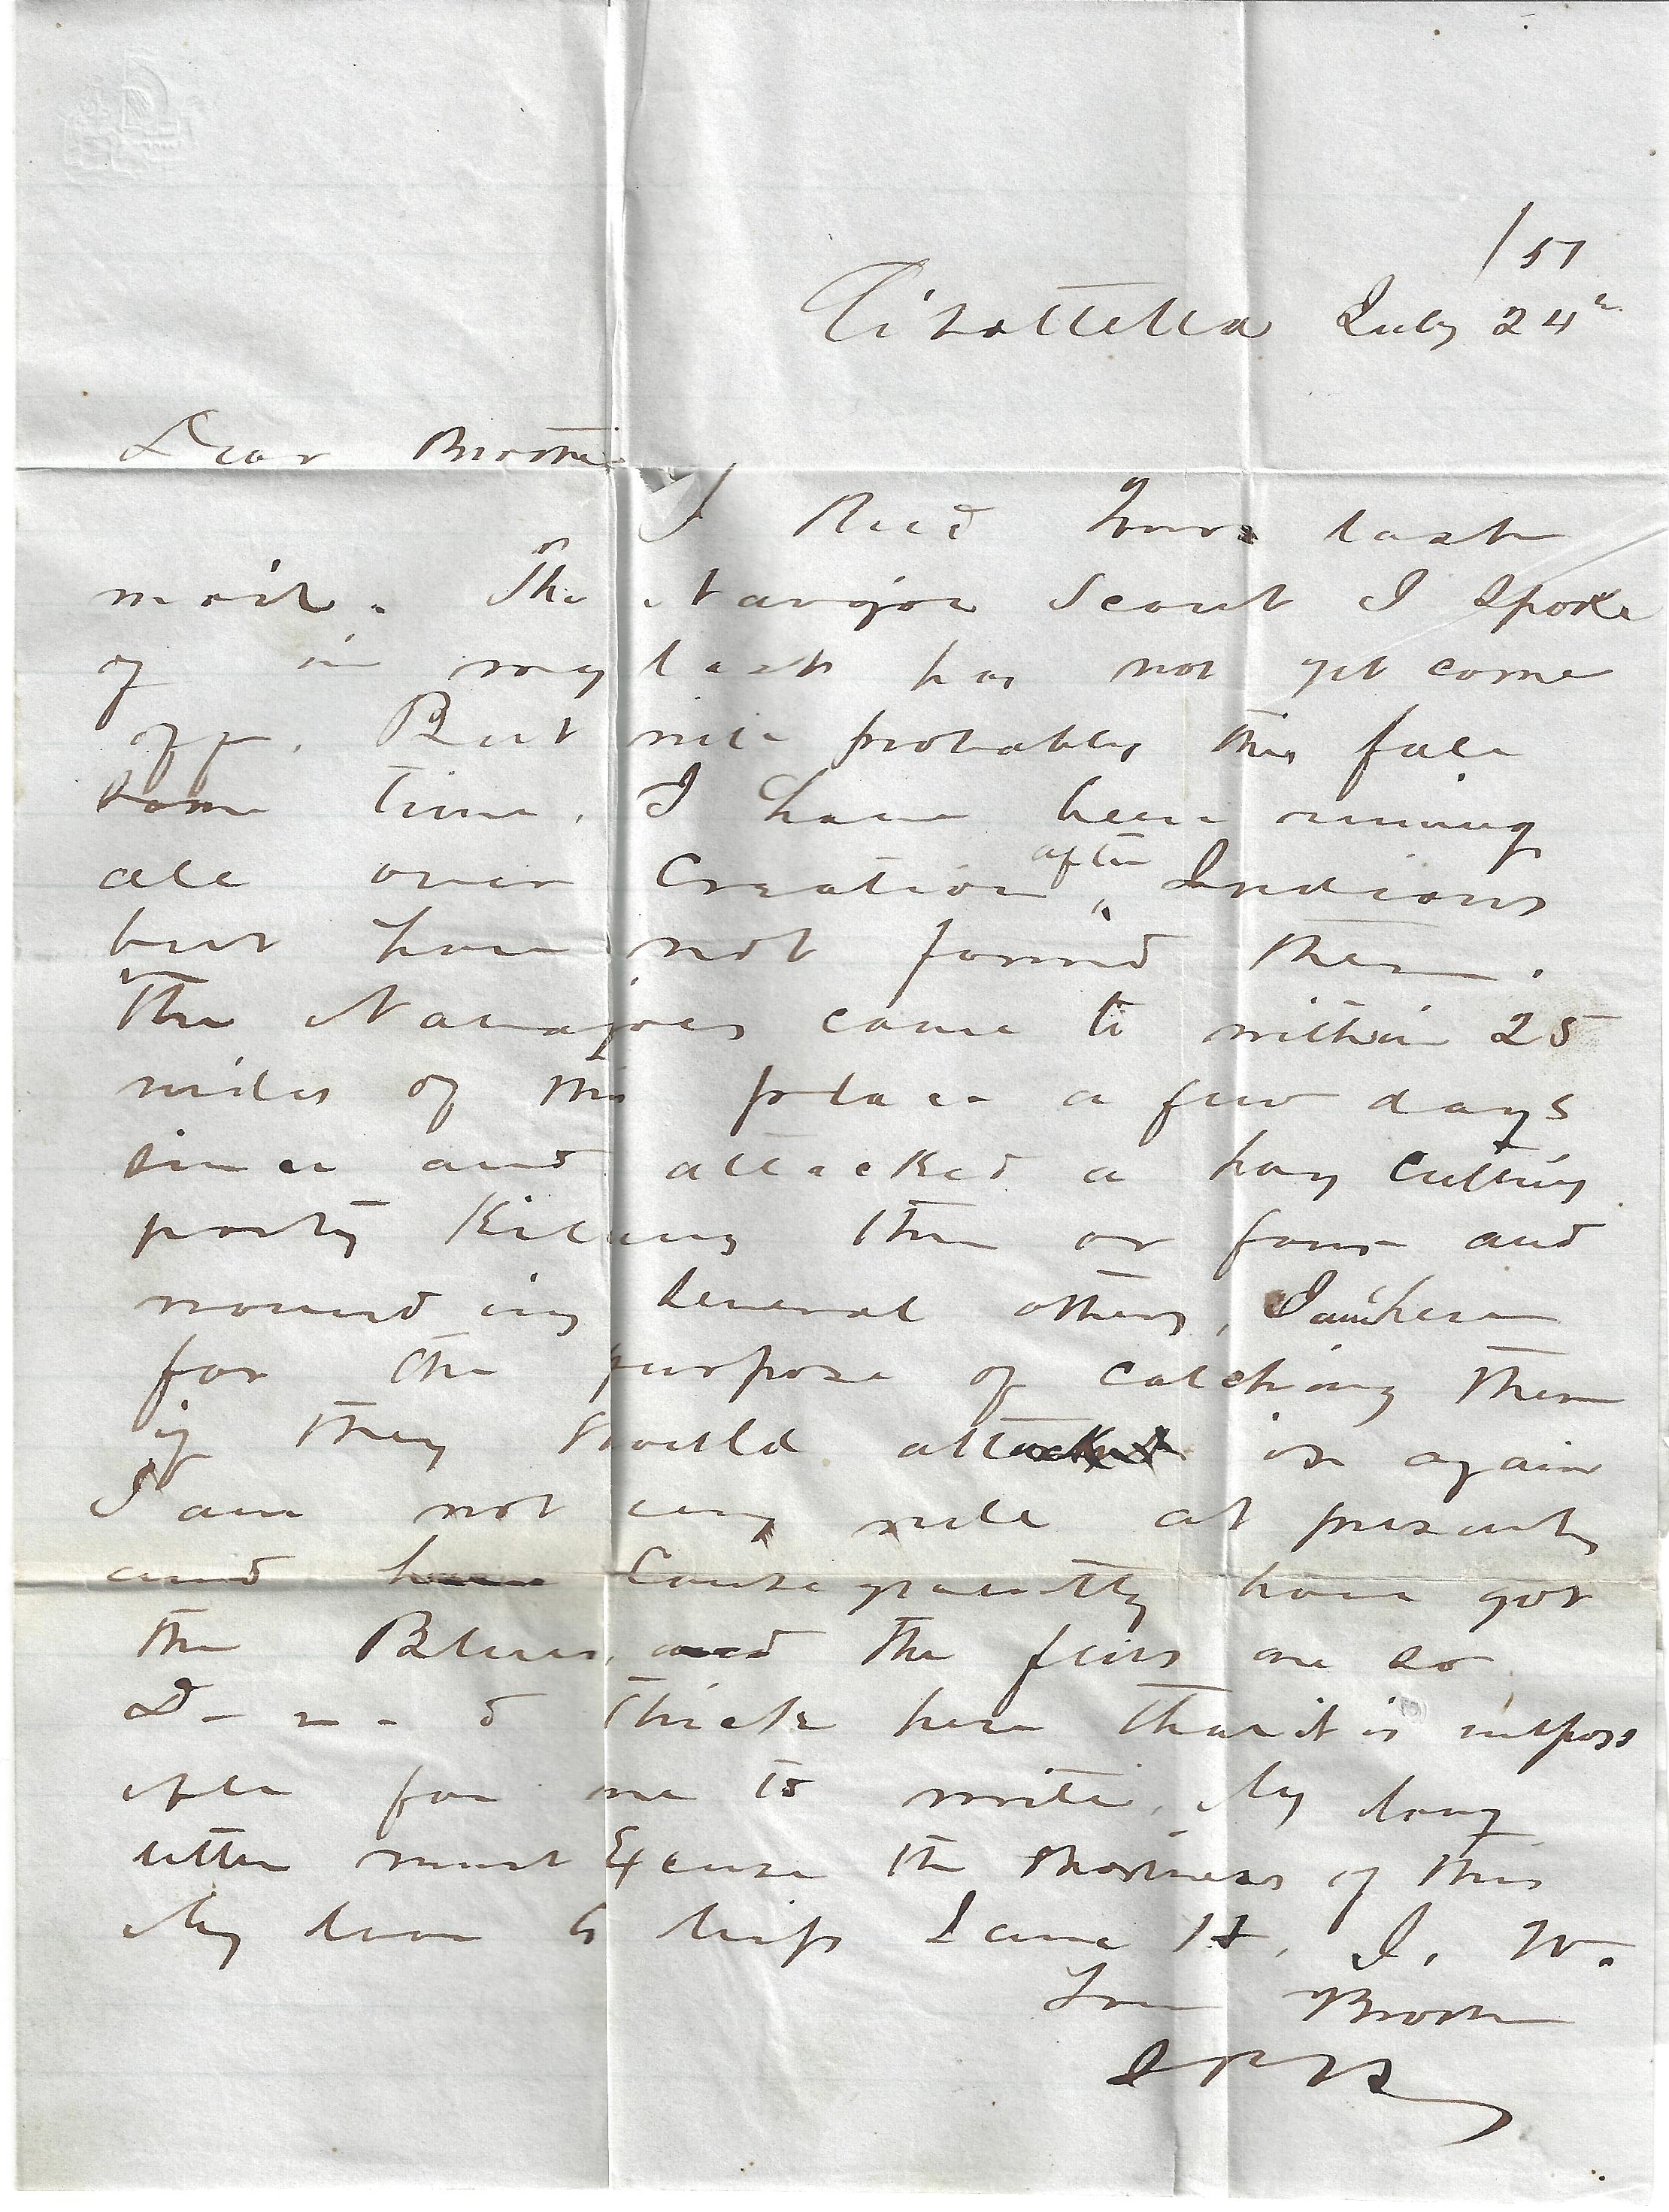 /51
July 24th
Dear Brother
I Recd Yours last
mail. The Navajoe Scout I Spoke
of in my last has not yet come
off. But will probably this fall
some time. I have been runing
all over Creation after Indians
but have not found them.
The Navajoes came to within 25
miles of this place a few days
since and attacked a hay cutting
party Killing three or four and
wounding several others, I am here
for the purpose of catching them
if they should attack us again
I am not very well at present
and have Consequently have got
the Blues, and the flies are so
D - - - d thick here that it is imposs
ible for me to write. My long
letter must Excuse the shortness of this
My love to
Your Brother